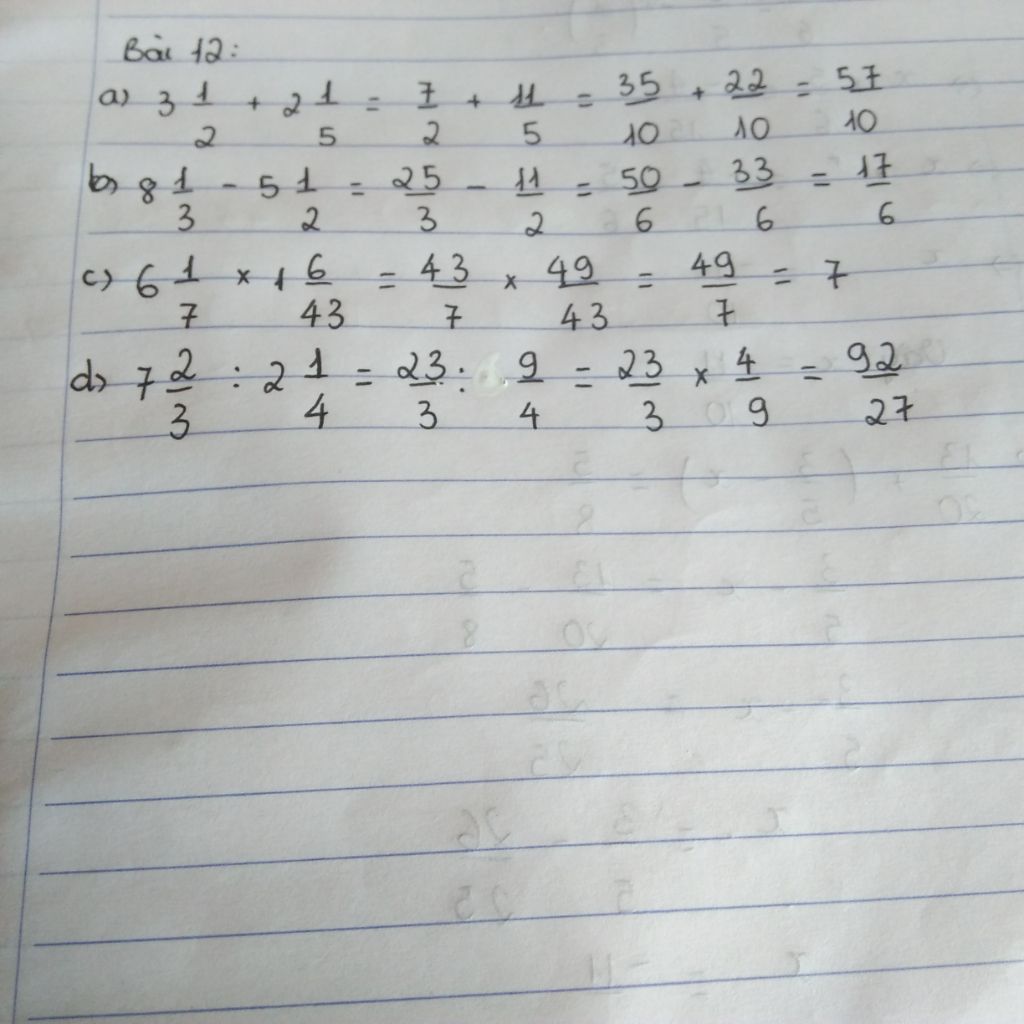 Bài 12:
a) 3 1/2 + 2 1/5 = 7/2 + 11/5 = 35/10 + 22/10 = 57/10
b) 8 1/3 - 5 1/2 = 25/3 - 11/2 = 50/6 - 33/6 = 17/6
c) 6 1/7 × 1 6/43 = 43/7 × 49/43 = 49/7 = 7
d) 7 2/3 : 2 1/4 = 23/3 : 9/4 = 23/3 × 4/9 = 92/27